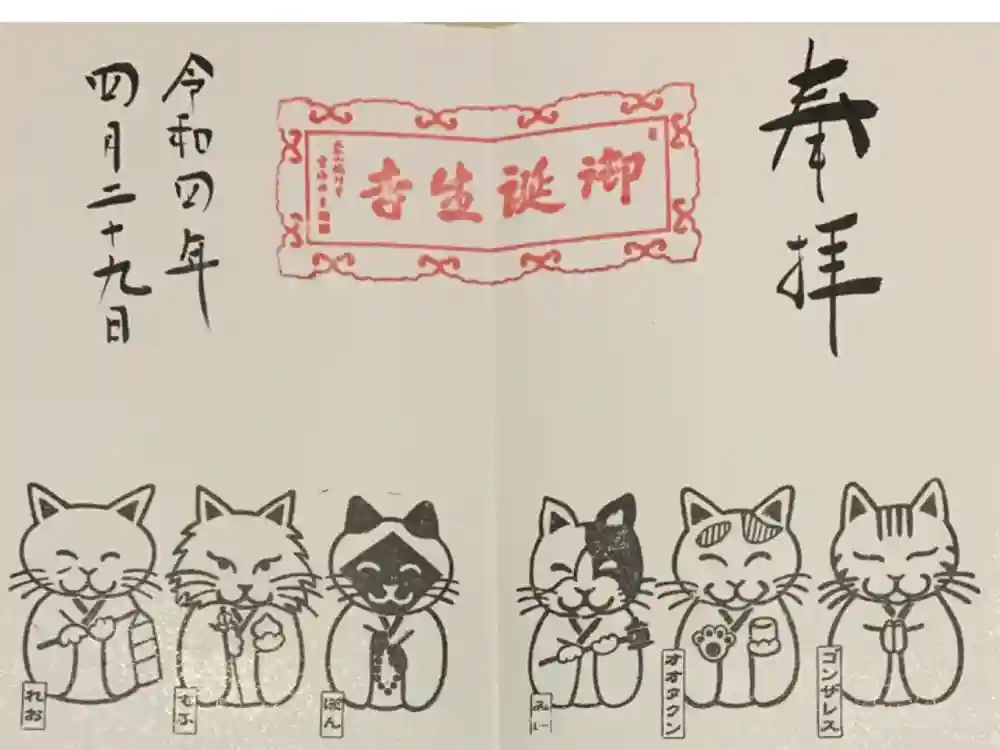 奉拝
御誕生寺
令和四年
四月二十九日
ゴンザレス
オオタクン
みー
ぽん
もふ
れお